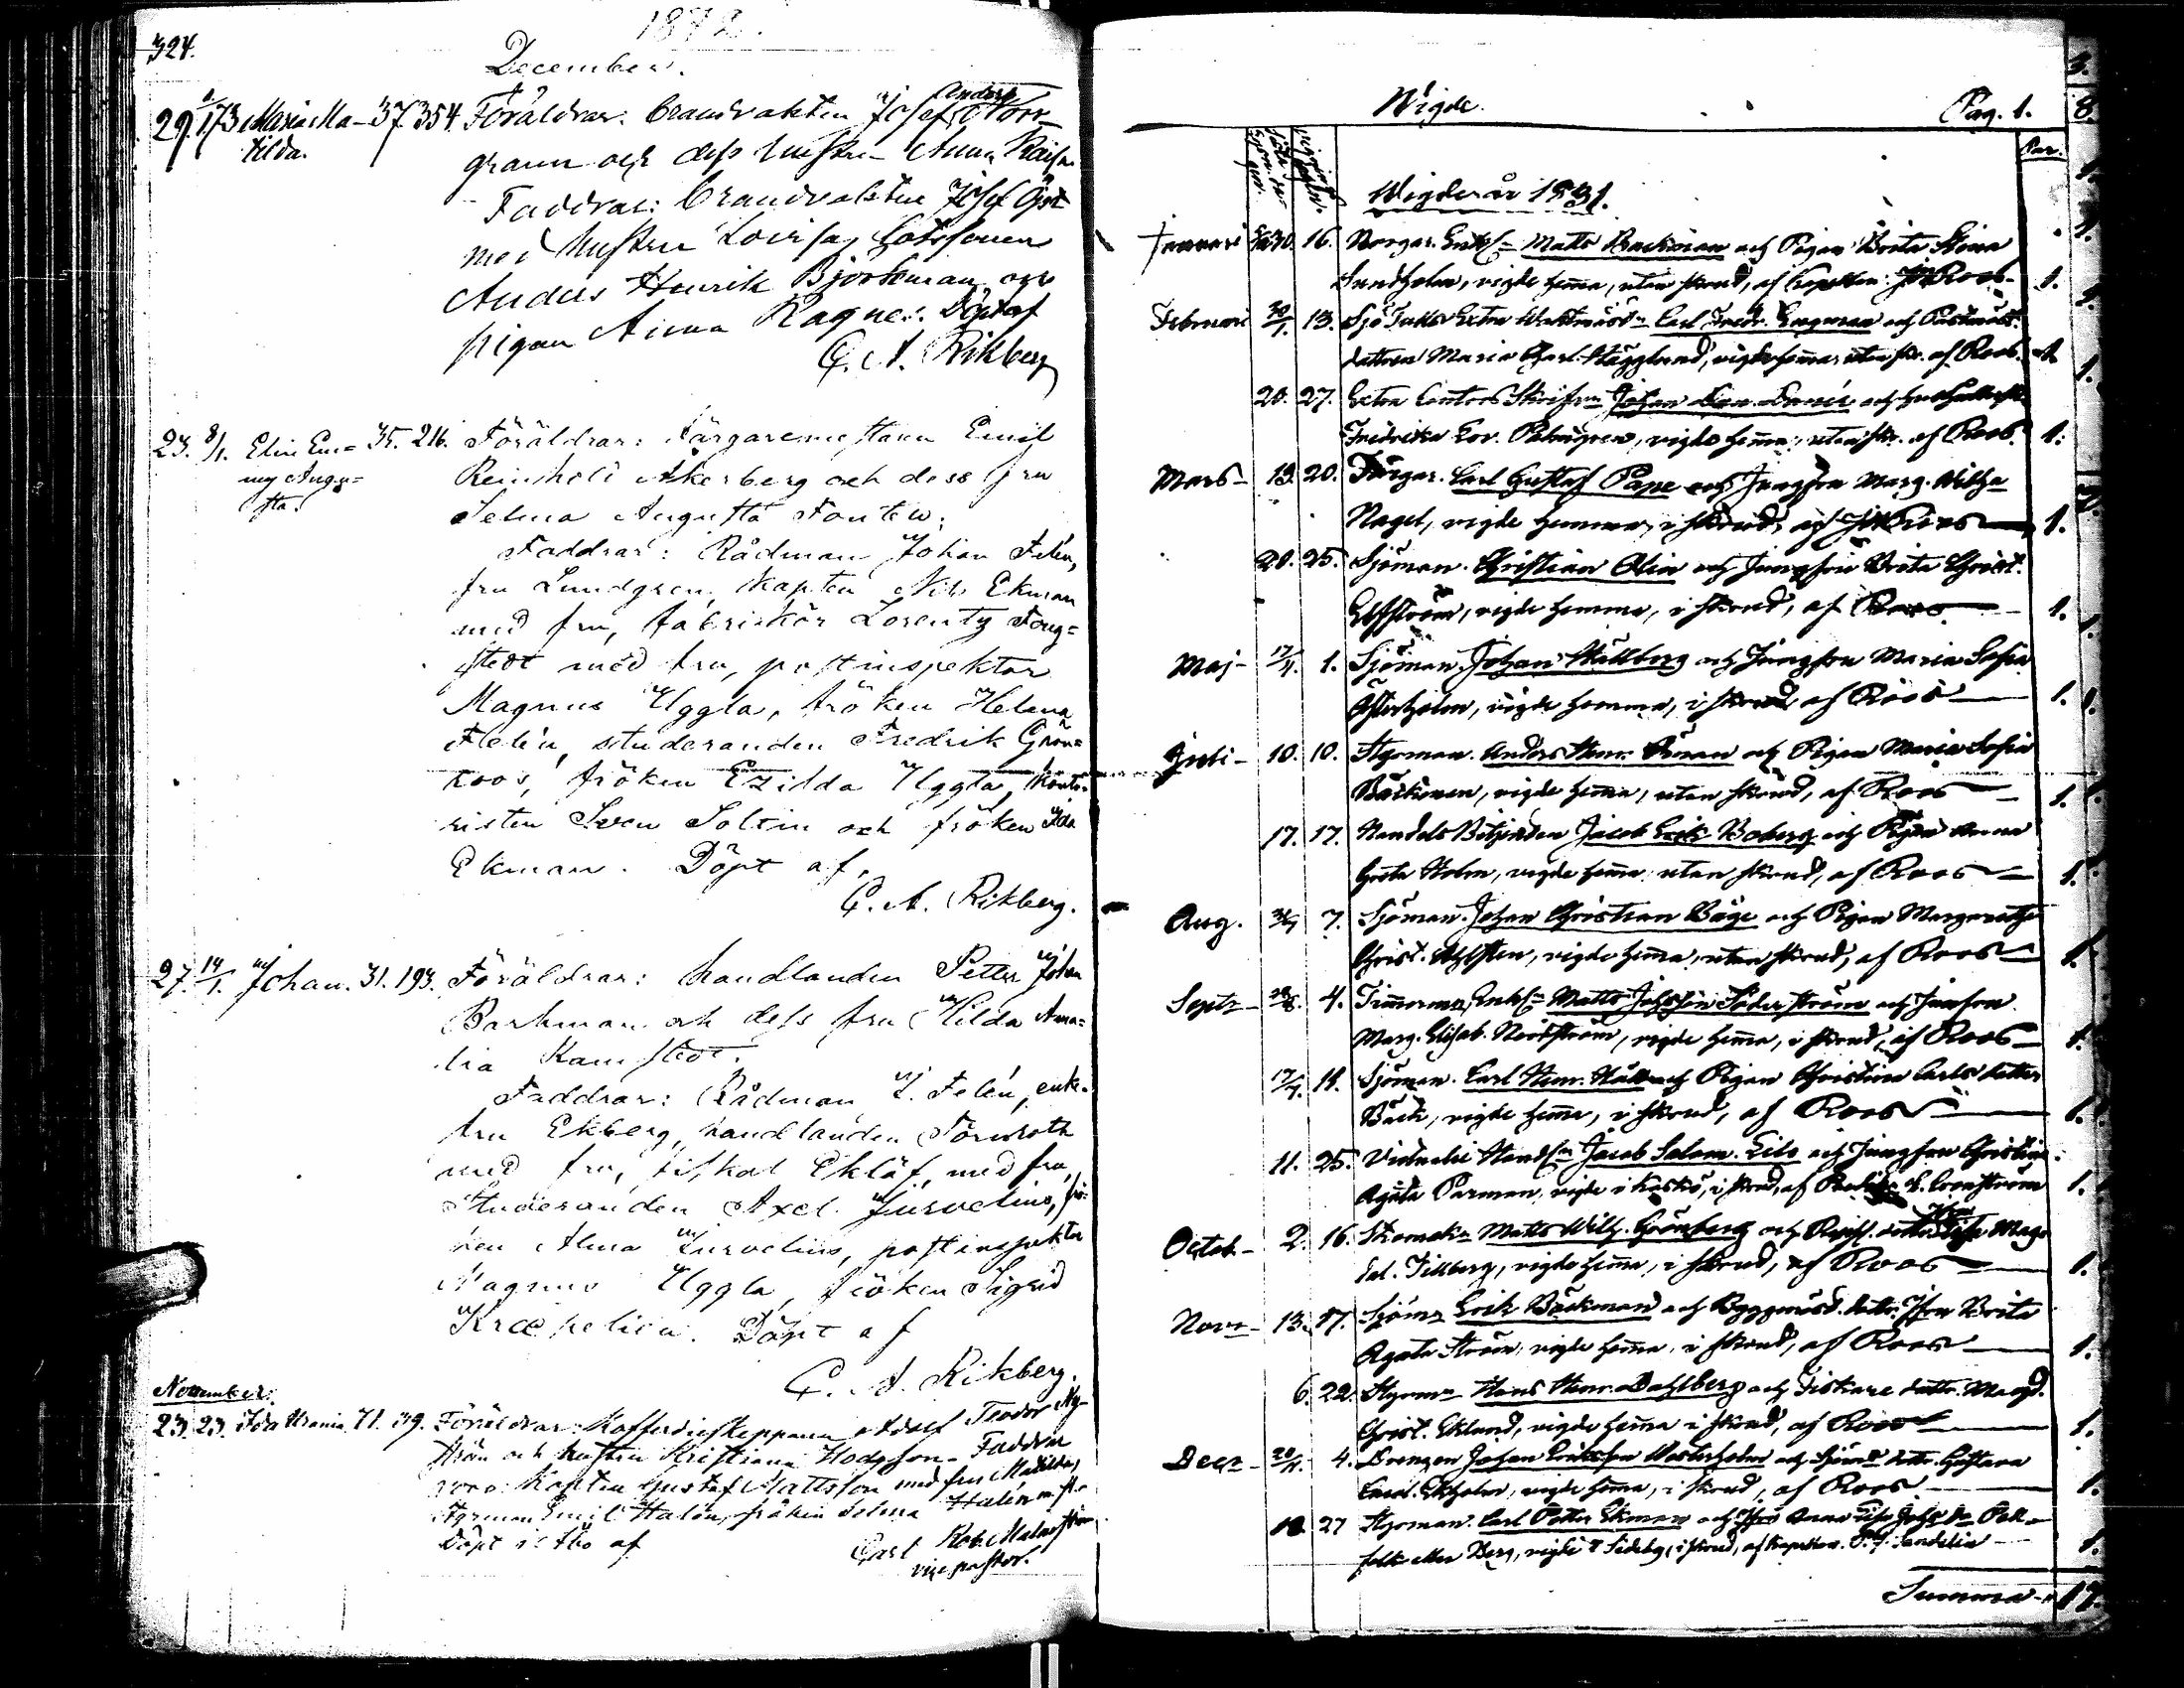 324.
1872.
December.
29. 1/1 73 Maria Ma- 37 354. Föräldrar: brandvakten Josef Norr-
tilda.
grann och dess hustru Anna Kaisa
Faddrar: brandvakten Josef Öst
med hustru Lovisa,
Anders Henrik Björkman och
pigan Anna Ragnel. Döpt af
C. A. Rikberg
23. 8/1. Elin Em= 35. 216. Föräldrar: färgaremästaren Emil
my Augu=
sta.
Reinhold Åkerberg och dess fru
Selma Augusta Fontell.
Faddrar: Rådman Johan Felén,
fru Lundgren, kapten Nils Ekman
med fru, fabrikör Lorentz Feng=
stedt med fru, postinspektor
Magnus Uggla, fröken Helena
Felén, studeranden Fredrik Grön=
roos, fröken Ezilda Uggla, konto=
risten Sven Soltin och fröken Ida
Ekman. Döpt af,
C. A. Rikberg.
27. 14/1. Johan. 31. 193. Föräldrar: handlanden Petter Johan
Barkman och dess fru Hilda Ama=
lia Kamstedt.
Faddrar: Rådman J. Felén, enke-
fru Ekberg, handlanden Törnroth
med fru, fiskal Eklöf med fru,
Studeranden Axel Jusvelius, frö-
ken Alma Jusvelius, postinspektor
Magnus Uggla, fröken Sigrid
Kræpelien. Döpt af
C. A. Rikberg.
November.
23. 23. Ida Urania 71. 39. Föräldrar: Kofferdieskepparen Adolf Teodor Ny-
ström och hustru Kristiana Hodgson. Faddrar
voro: Kapten Gustaf Mattsson med fru Matilda,
Styrman Emil Halén, fröken Selma Halén m. fl.
Döpt i Åbo af
Carl Rob. Malmström
vice pastor.
Wigde
Pag. 1.
Par.
Wigde år 1831.
Januari 16. Borgar. Enkl. Matts Backman och Pigan Brita Stina
Sundholm, vigde hemma, utan skrud, af Kapellan Roos 1.
Februari 30/1. 13. Sjö Tulls Extra Waktmäst. Carl Fredr. Engman och
dottren Maria Charl. Hägglund, vigde hemma utan skr. af Roos. 1.
20. 27. Extra Contors Skrifv. Johan
Fredrica Lov. Palmgren, vigde hemma, utan skr. af Roos. 1.
Mars 13. 20. Färgar. Carl Gustaf Pape och Jungfru Marg. Wilh:a
Nagel, vigde hemma, i skrud, af Roos 1.
20. 25. Sjöman. Christian Olin och Jungfru Brita Christ.
Elfström, vigde hemma, i skrud, af Roos 1.
Maj 17/4. 1. Sjöman. Johan Stållberg och Jungfru Maria Sofia
Österholm, vigde hemma, i skrud, af Roos 1.
Juli 10. 10. Styrman. Anders Henr. Öman och Pigan Maria Sofia
Backman, vigde hemma, utan skrud, af Roos 1.
17. 17. Handels Betjenten Jacob Erik Boberg och Pigan Anna
Greta Holm, vigde hemma utan skrud, af Roos 1.
Aug. 7. Sjöman. Johan Christian Båge och Pigan Margaretha
Christ. Ahlsten, vigde hemma, utan skrud, af Roos 1.
Septr 28/8. 4. Timmerman, Enkl. Matts Johsson Söderström och Jungfru
Marg. Elisab. Nordström, vigde hemma, i skrud, af Roos 1.
17/7. 11. Sjöman. Carl Henr. Häll och Pigan Christina Carls dotter
Bäck, vigde hemma, i skrud, af Roos 1.
11. 25. Victualie Handl. Jacob Salom. Eklo och Jungfru Christina
Agata Parman, vigde i Kaskö, i skrud, af Cronström 1.
Octob. 2. 16. Skomak. Matts Wilh. Grönberg och
Tillberg, vigde hemma, i skrud, af Roos 1.
Novr 13. 17. Sjöm. Erik Bäckman och Byggmäst. dottr. Jfru Brita
Agata Ström, vigde hemma, i skrud, af Roos 1.
6. 22. Styrm. Hans Henr. Dahlberg och Fiskare dottr. Magd.
Christ. Eklund, vigde hemma i skrud, af Roos 1.
Decr 20/11. 4. Drengen Johan Eriksson Westerholm och Sjöm. dottr. Gustava
Ekholm, vigde hemma, i skrud, af Roos. 1.
18. 27 Styrman. Carl Petter Ekman och Jfru Anna
folk eller Berg, vigde i Sideby, i skrud, af Kapellan Sandelin 1.
Summa 17.